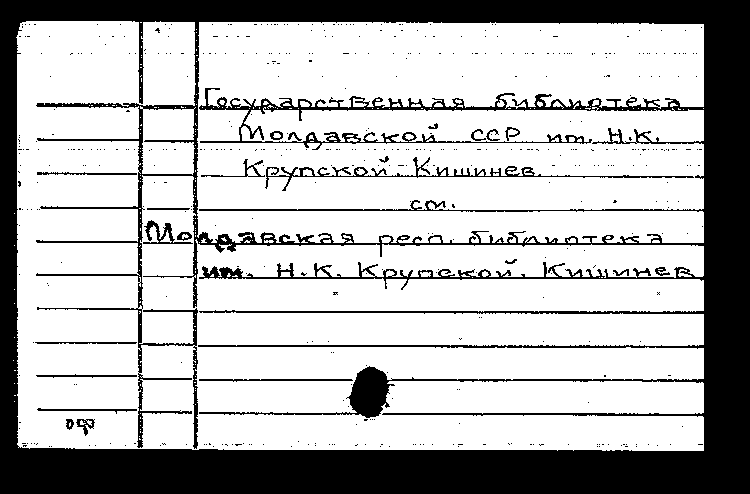 Государственная библиотека
Молдавской ССР им. Н.К.
Крупской. Кишинев.
см.
Молдавская респ. библиотека
им. Н.К. Крупской. Кишинев